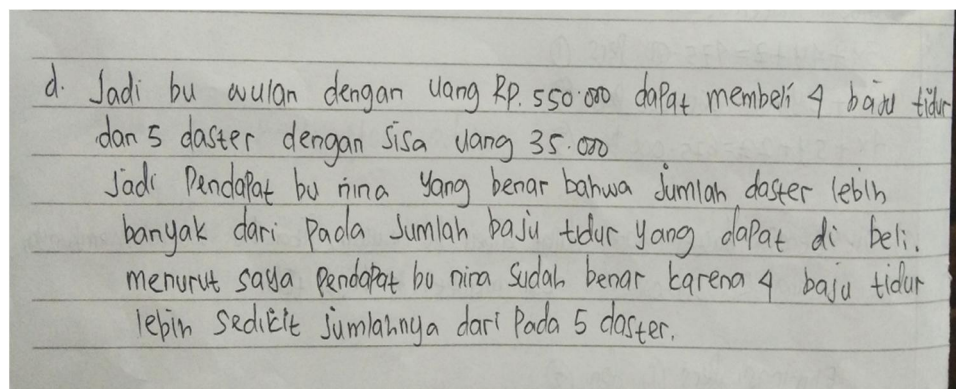 d. Jadi bu wulan dengan uang Rp. 550.000 dapat membeli 4 baju tidur
dan 5 daster dengan sisa uang 35.000
Jadi Pendapat bu nina yang benar bahwa Jumlah daster lebih
banyak dari pada Jumlah baju tidur yang dapat di beli.
menurut saya pendapat bu nina sudah benar karena 4 baju tidur
lebih sedikit jumlahnya dari pada 5 daster.